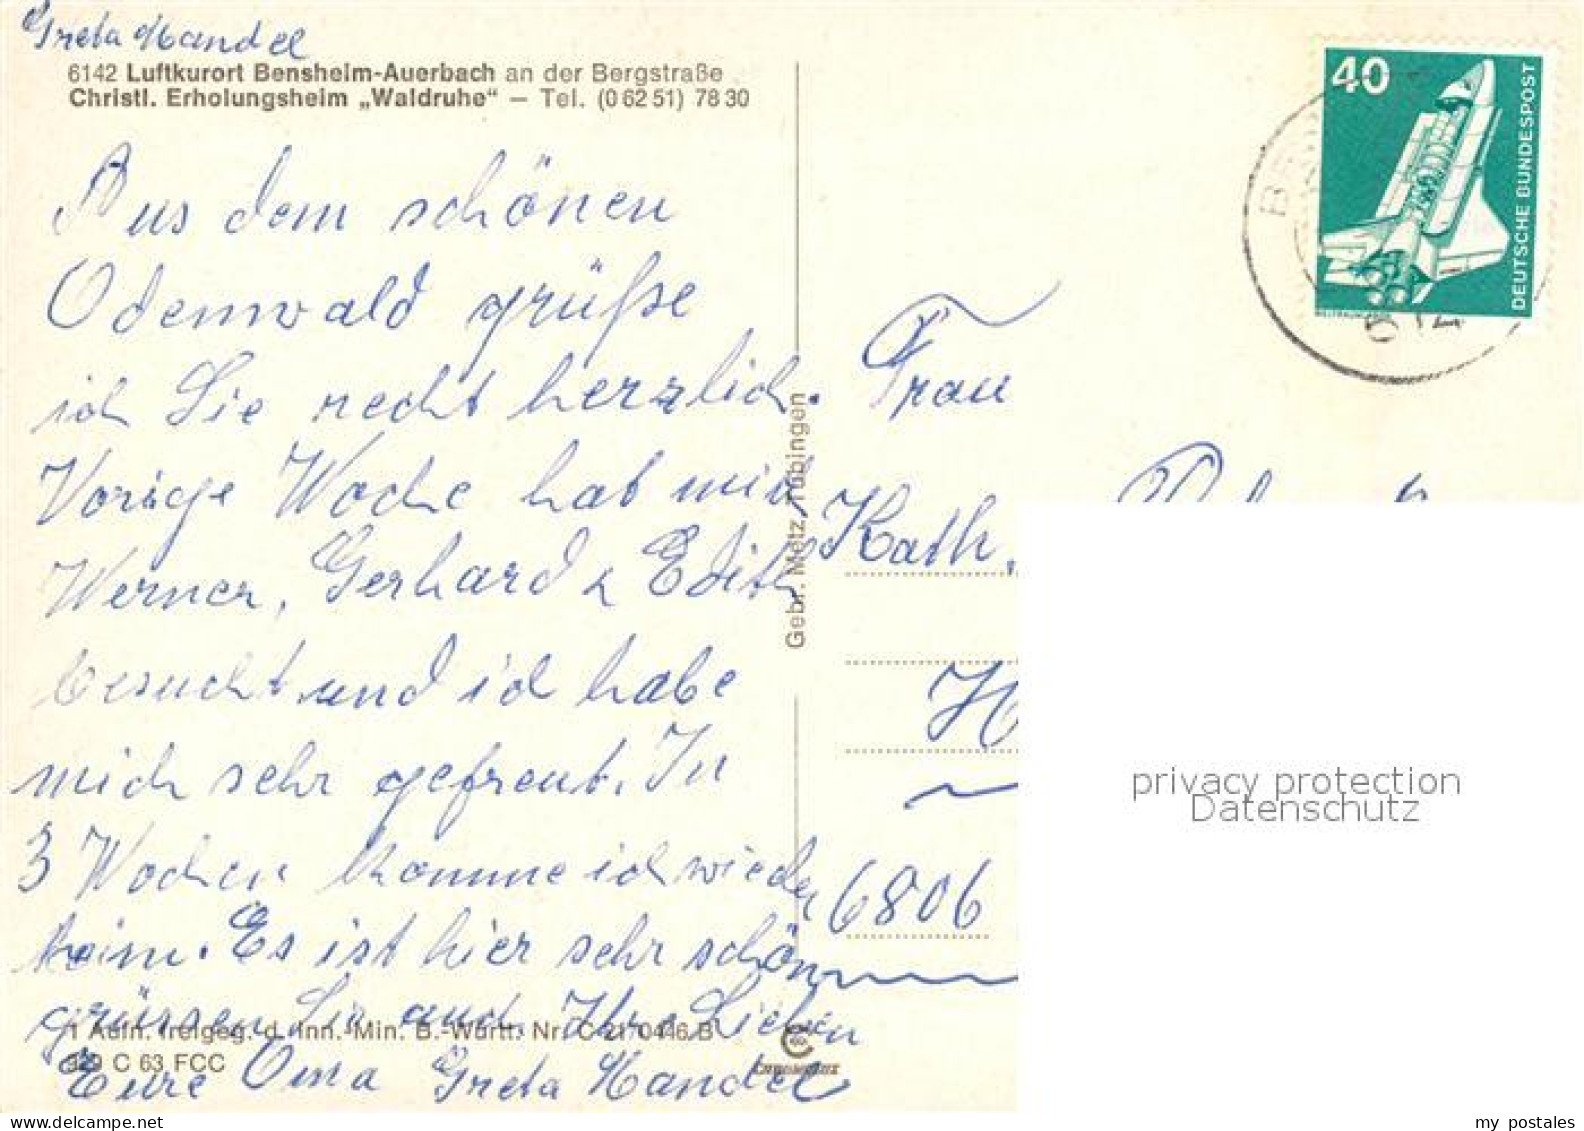 Greta Handel
6142 Luftkurort Bensheim-Auerbach an der Bergstraße
Christl. Erholungsheim „Waldruhe" – Tel. (0 62 51) 78 30
Aus dem schönen
Odenwald grüße
ich Sie recht herzlich.
Vorige Woche hat mich
Werner, Gerhard u Edith
besucht und ich habe
mich sehr gefreut. In
3 Wochen komme ich wieder
heim. Es ist hier sehr schön
grüssen Sie auch Ihre Lieben
Eure Oma Greta Handel
1 Aufn. freigeg. d. Inn.-Min. B.-Württ. Nr. C 21/0446 B
329 C 63 FCC
Gebr. Metz, Tübingen
40
DEUTSCHE BUNDESPOST
Frau
Kath.
H
6806
privacy protection
Datenschutz
my postales